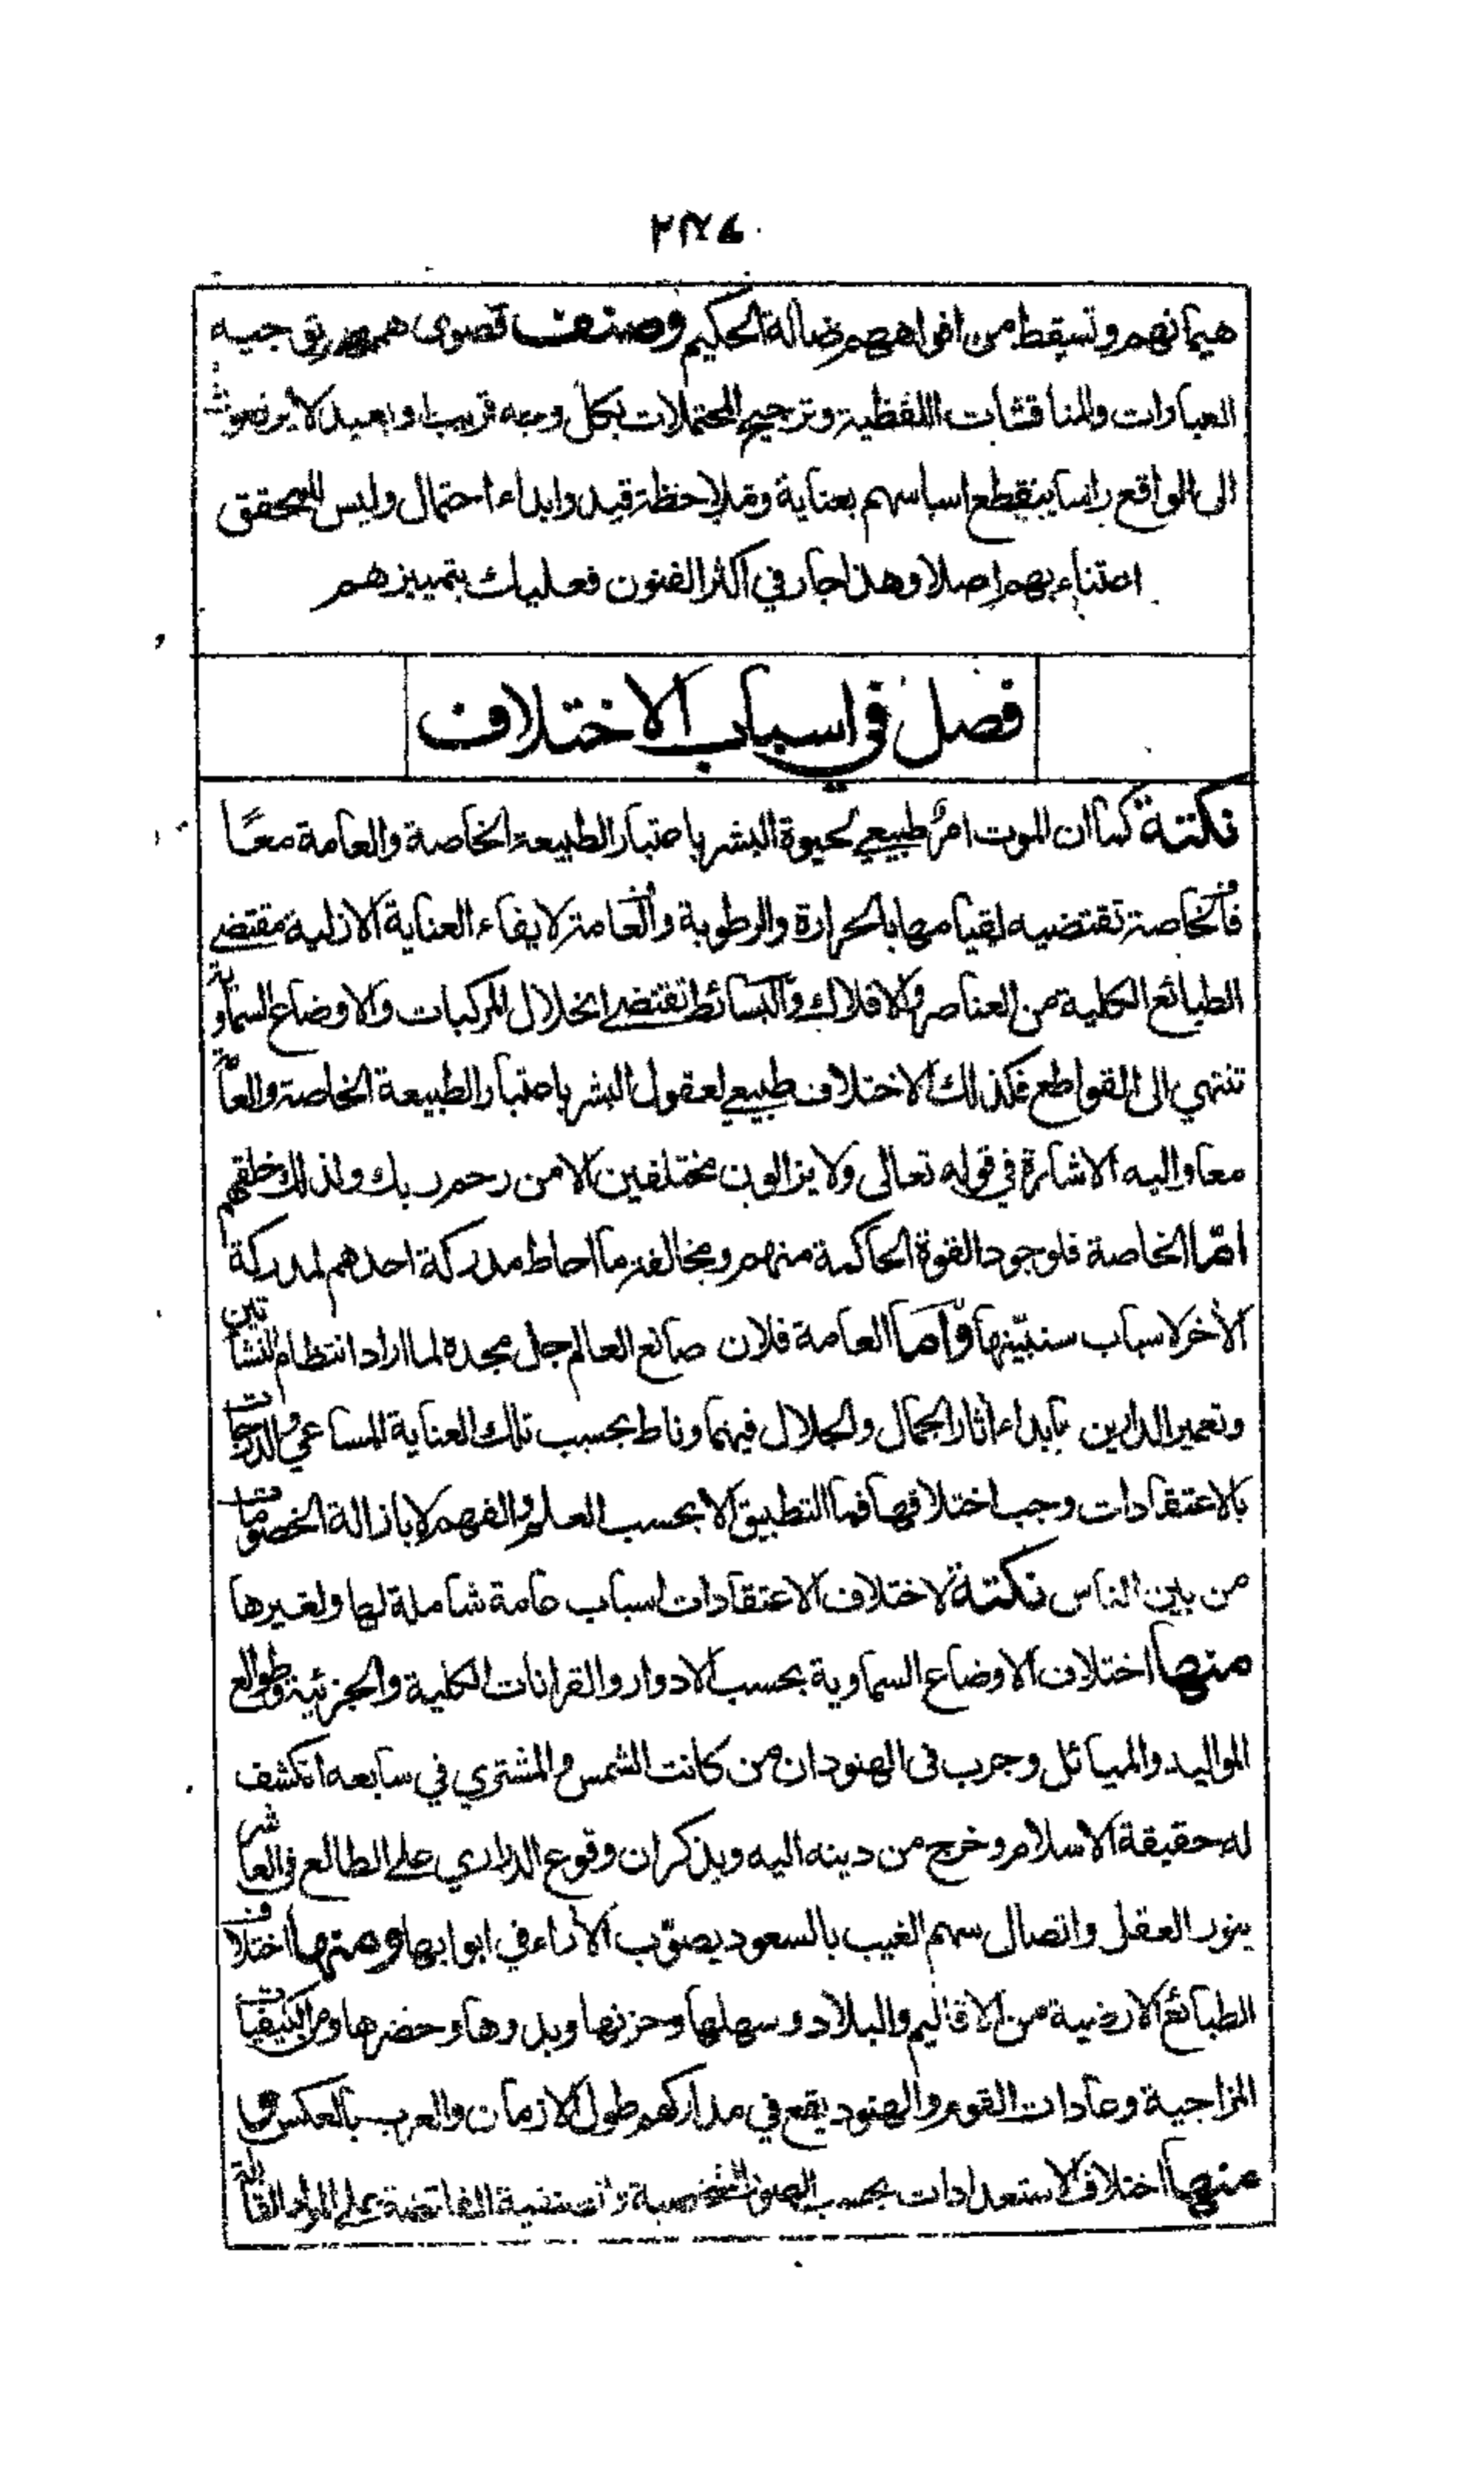 هيمانهم وتسقط من افواههم ضالة الحكيم وصنف قصوى همهم توجيه
العبارات والمناقشات اللفظية وترجيح المحتملات بكل وجه قريب او بعيد لا يرضون
الى الواقع راسا ينقطع اساسهم بعناية وملاحظة قيد وابداء احتمال وليس للمحقق
اعتناء بهم اصلا وهذا جار في اكثر الفنون فعليك بتمييزهم
فصل في اسباب الاختلاف
نكتة كما ان الموت امر طبيعي لحيوة البشر باعتبار الطبيعة الخاصة والعامة معًا
فالخاصة تقتضيه لقيامها بالحرارة والرطوبة والعامة لايفاء العناية الازلية مقتضى
الطبائع الكلية من العناصر والافلاك والبسائط تقتضي انحلال المركبات والاوضاع السماوية
تنتهي الى القواطع فكذلك الاختلاف طبيعي لعقول البشر باعتبار الطبيعة الخاصة والعامة
معا واليه الاشارة في قوله تعالى ولا يزالون مختلفين الا من رحم ربك ولذلك خلقهم
امّا الخاصة فلوجود القوة الحاكمة منهم ومخالفة ما احاط مدركة احدهم لمدركة
الأخر لاسباب سنبيّنها وّاما العامة فلان صانع العالم جل مجده لما اراد انتظام النشأتين
وتعمير الدارين بابداء أثار الجمال والجلال فيهما وناط بحسب تلك العناية المساعي والدرجات
بالاعتقادات وجب اختلافها فما التطبيق الا بحسب العلم والفهم لا بازالة الخصومات
من بين الناس نكتة لاختلاف الاعتقادات اسباب عامة شاملة لها ولغيرها
منها اختلاف الاوضاع السماوية بحسب الادوار والقرانات الكلية والجزئية وطوالع
المواليد والمسائل وجرب في الهنود ان من كانت الشمس والمشتري في سابعه انكشف
له حقيقة الاسلام وخرج من دينه اليه ويذكر ان وقوع الدراري على الطالع والعاشر
ينور العقل واتصال سهم الغيب بالسعود يصوّب الأراء في ابوابها ومنها اختلاف
الطبائع الارضية من الاقاليم والبلاد وسهلها وحزنها وبدوها وحضرها ومن الكيفيات
المزاجية وعادات القوم والهنود يقع في مداركهم طول الازمان والعرب بالعكس و
منها اختلاف الاستعدادات بحسب الصور الشخصية والصنفية الفائضة على المواد القابلة